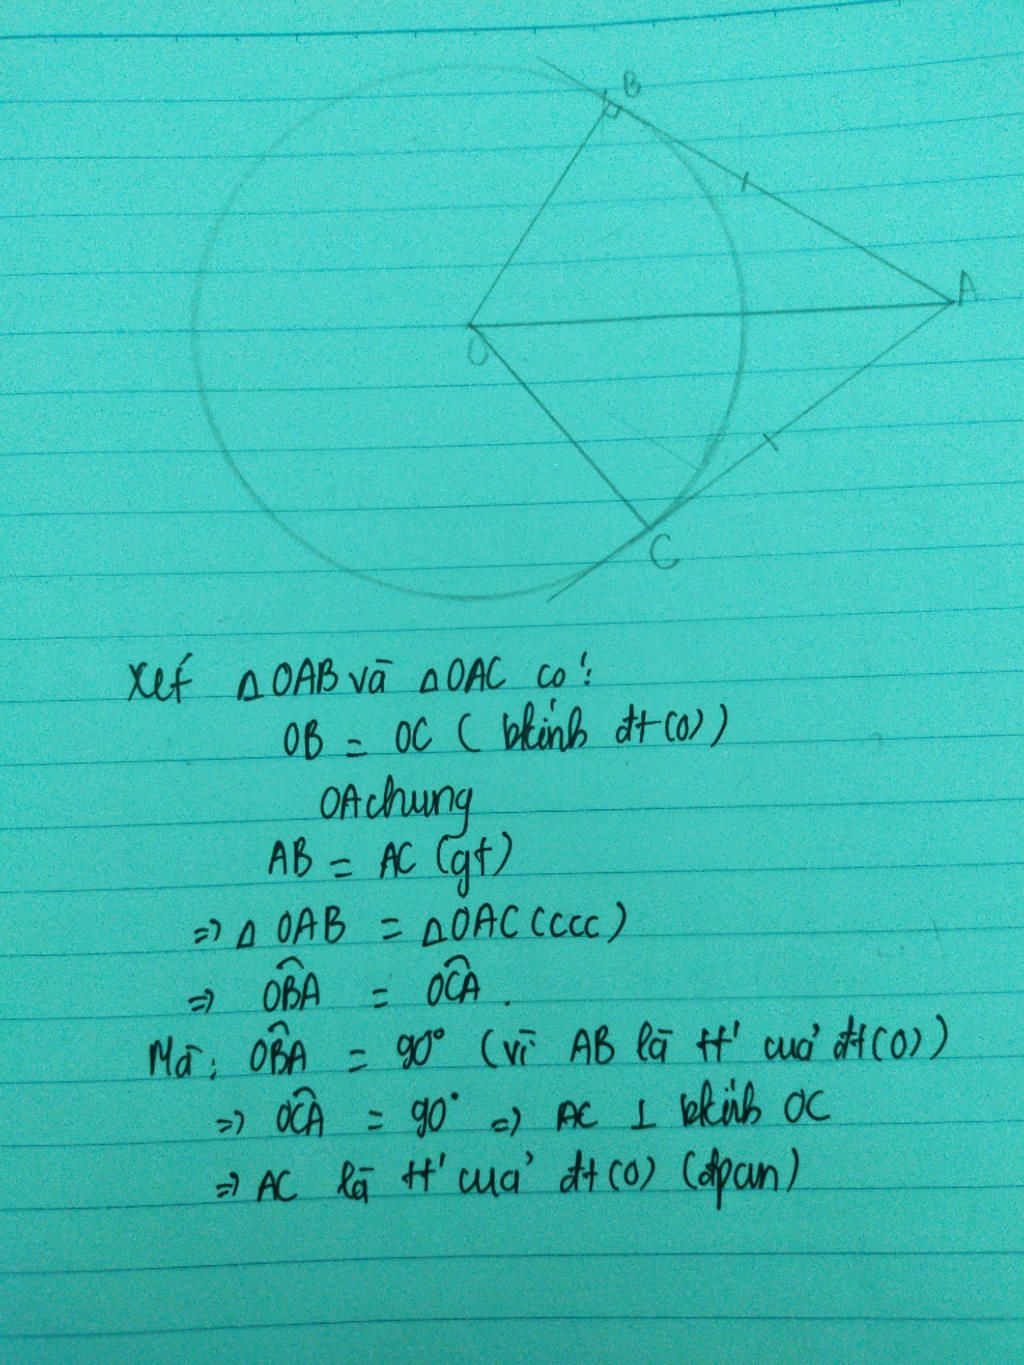 B
A
O
C
Xét △OAB và △OAC có:
OB = OC (bkính đt(O))
OA chung
AB = AC (gt)
=> △OAB = △OAC (ccc)
=> OBA = OCA.
Mà: OBA = 90° (vì AB là tt' của đt(O))
=> OCA = 90° => AC ⊥ bkính OC
=> AC là tt' của đt(O) (đpcm)